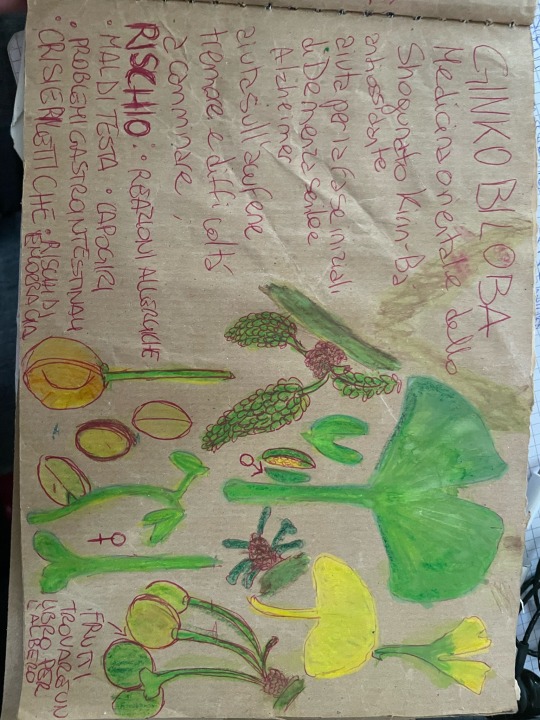 GINKO BILOBA
Medicina orientale dello
Shogunato Kirin-Ba
antiossidante
aiuta per la fase iniziali
di Demenza senile
Alzheimer
tremore e difficoltà
a camminare
RISCHIO: • REAZIONI ALLERGICHE
• MAL DI TESTA • CAPOGIRI
• PROBLEMI GASTROINTESTINALI
• CRISE EPILETTICHE • RISCHI DI
EMORRAGIA
♂
♀
FRUTTI
TROVARE UN
LIBRO PER
L'ALBERO